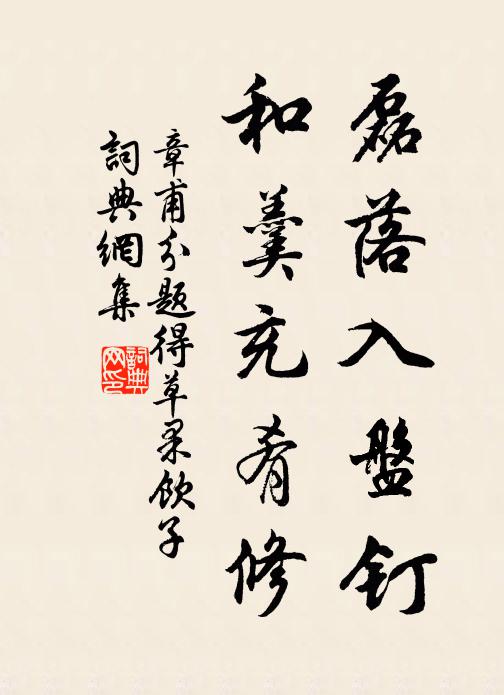 磊落入盤釘
和羹充肴修
章甫分題得草果飲子
詞典網集
詞典網印